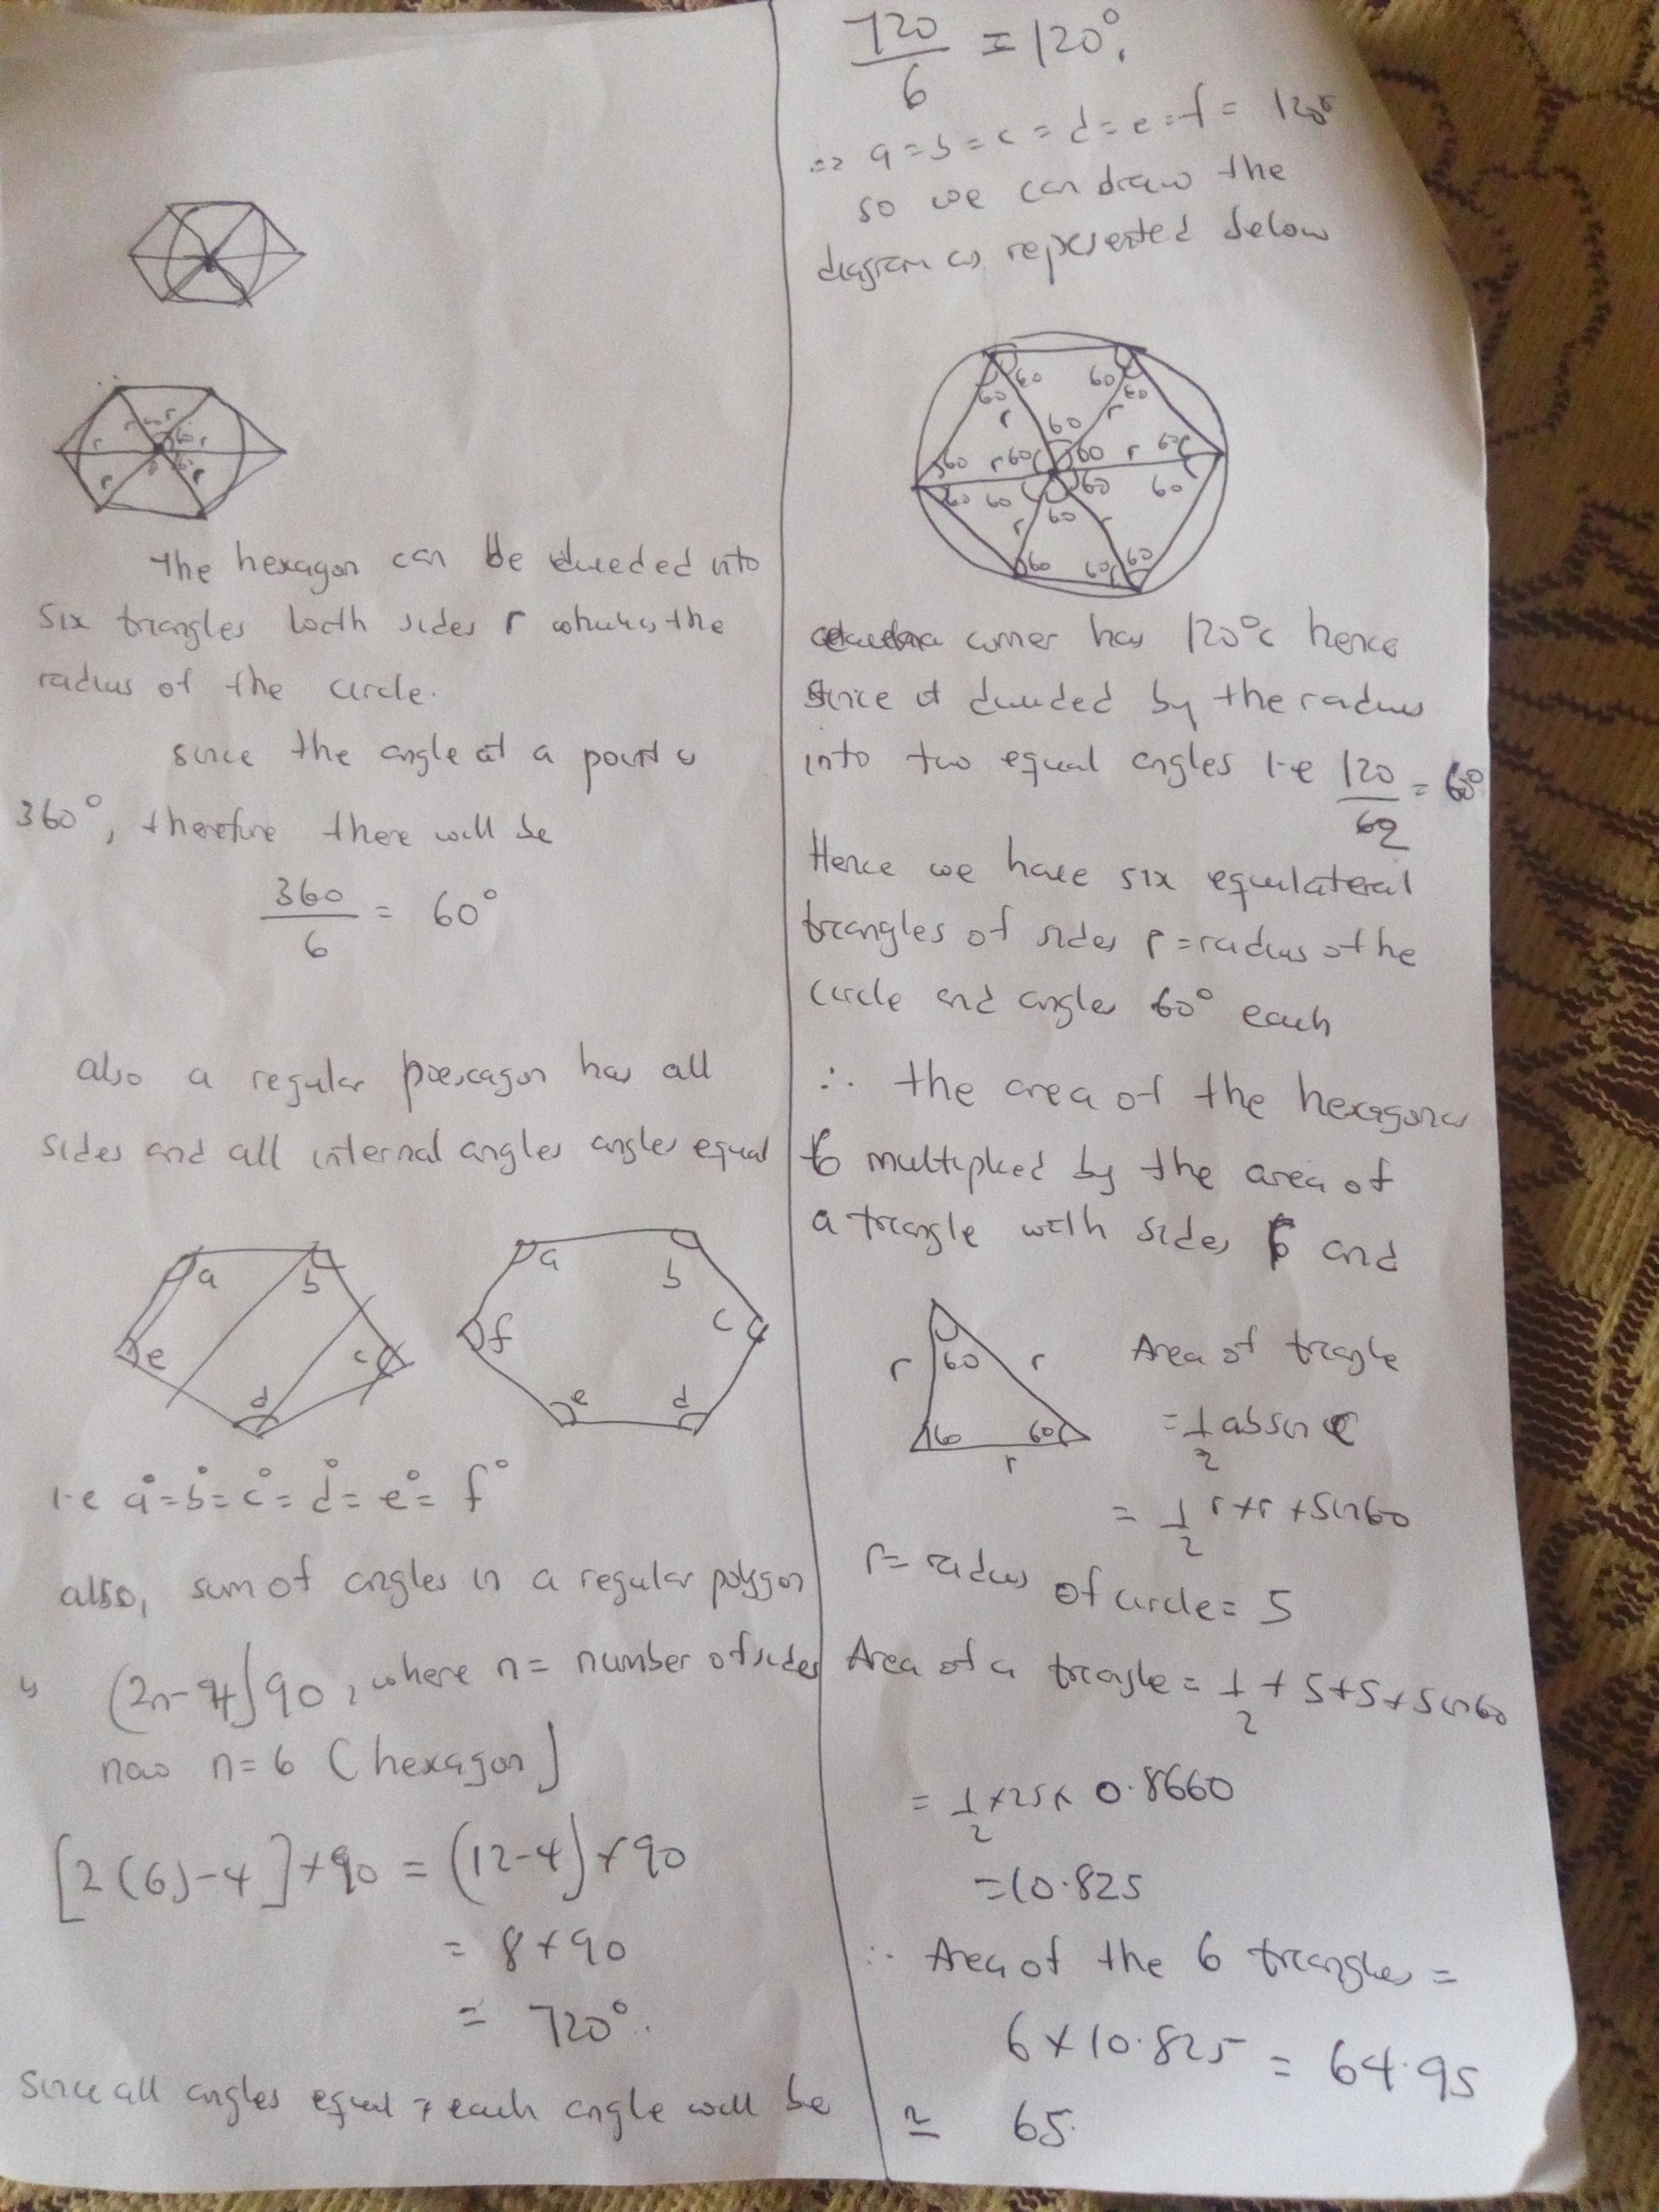 r r 60 r
r 60 r
r
The hexagon can be divided into
six triangles both sides r which is the
radius of the circle.
since the angle at a point is
360°, therefore there will be
360/6 = 60°
also a regular hexagon has all
sides and all internal angles angles equal
a b
e c
d
a b
f c
e d
i.e a° = b° = c° = d° = e° = f°
also, sum of angles in a regular polygon
is (2n-4)90, where n = number of sides
now n=6 (hexagon)
[2(6)-4]×90 = (12-4)×90
= 8×90
= 720°.
Since all angles equal, each angle will be
720/6 = 120°.
=> a=b=c=d=e=f= 120°
so we can draw the
diagram as represented below
60 60
60 60
r 60 r
60 r 60 60 r 60
60 60 60 60
r 60 r
60 60 60
corner has 120°c hence
since it divided by the radius
into two equal angles i.e 120/2 = 60°
Hence we have six equilateral
triangles of sides r = radius of the
circle and angles 60° each
∴ the area of the hexagon is
6 multiplied by the area of
a triangle with sides r and
r 60 r
60 60
r
Area of triagle
= 1/2 absin c
= 1/2 r×r×sin60
r = radius of circle = 5
Area of a triangle = 1/2 × 5×5×sin60
= 1/2 ×25× 0.8660
= 10.825
∴ Area of the 6 triangles =
6 × 10.825 = 64.95
≃ 65.